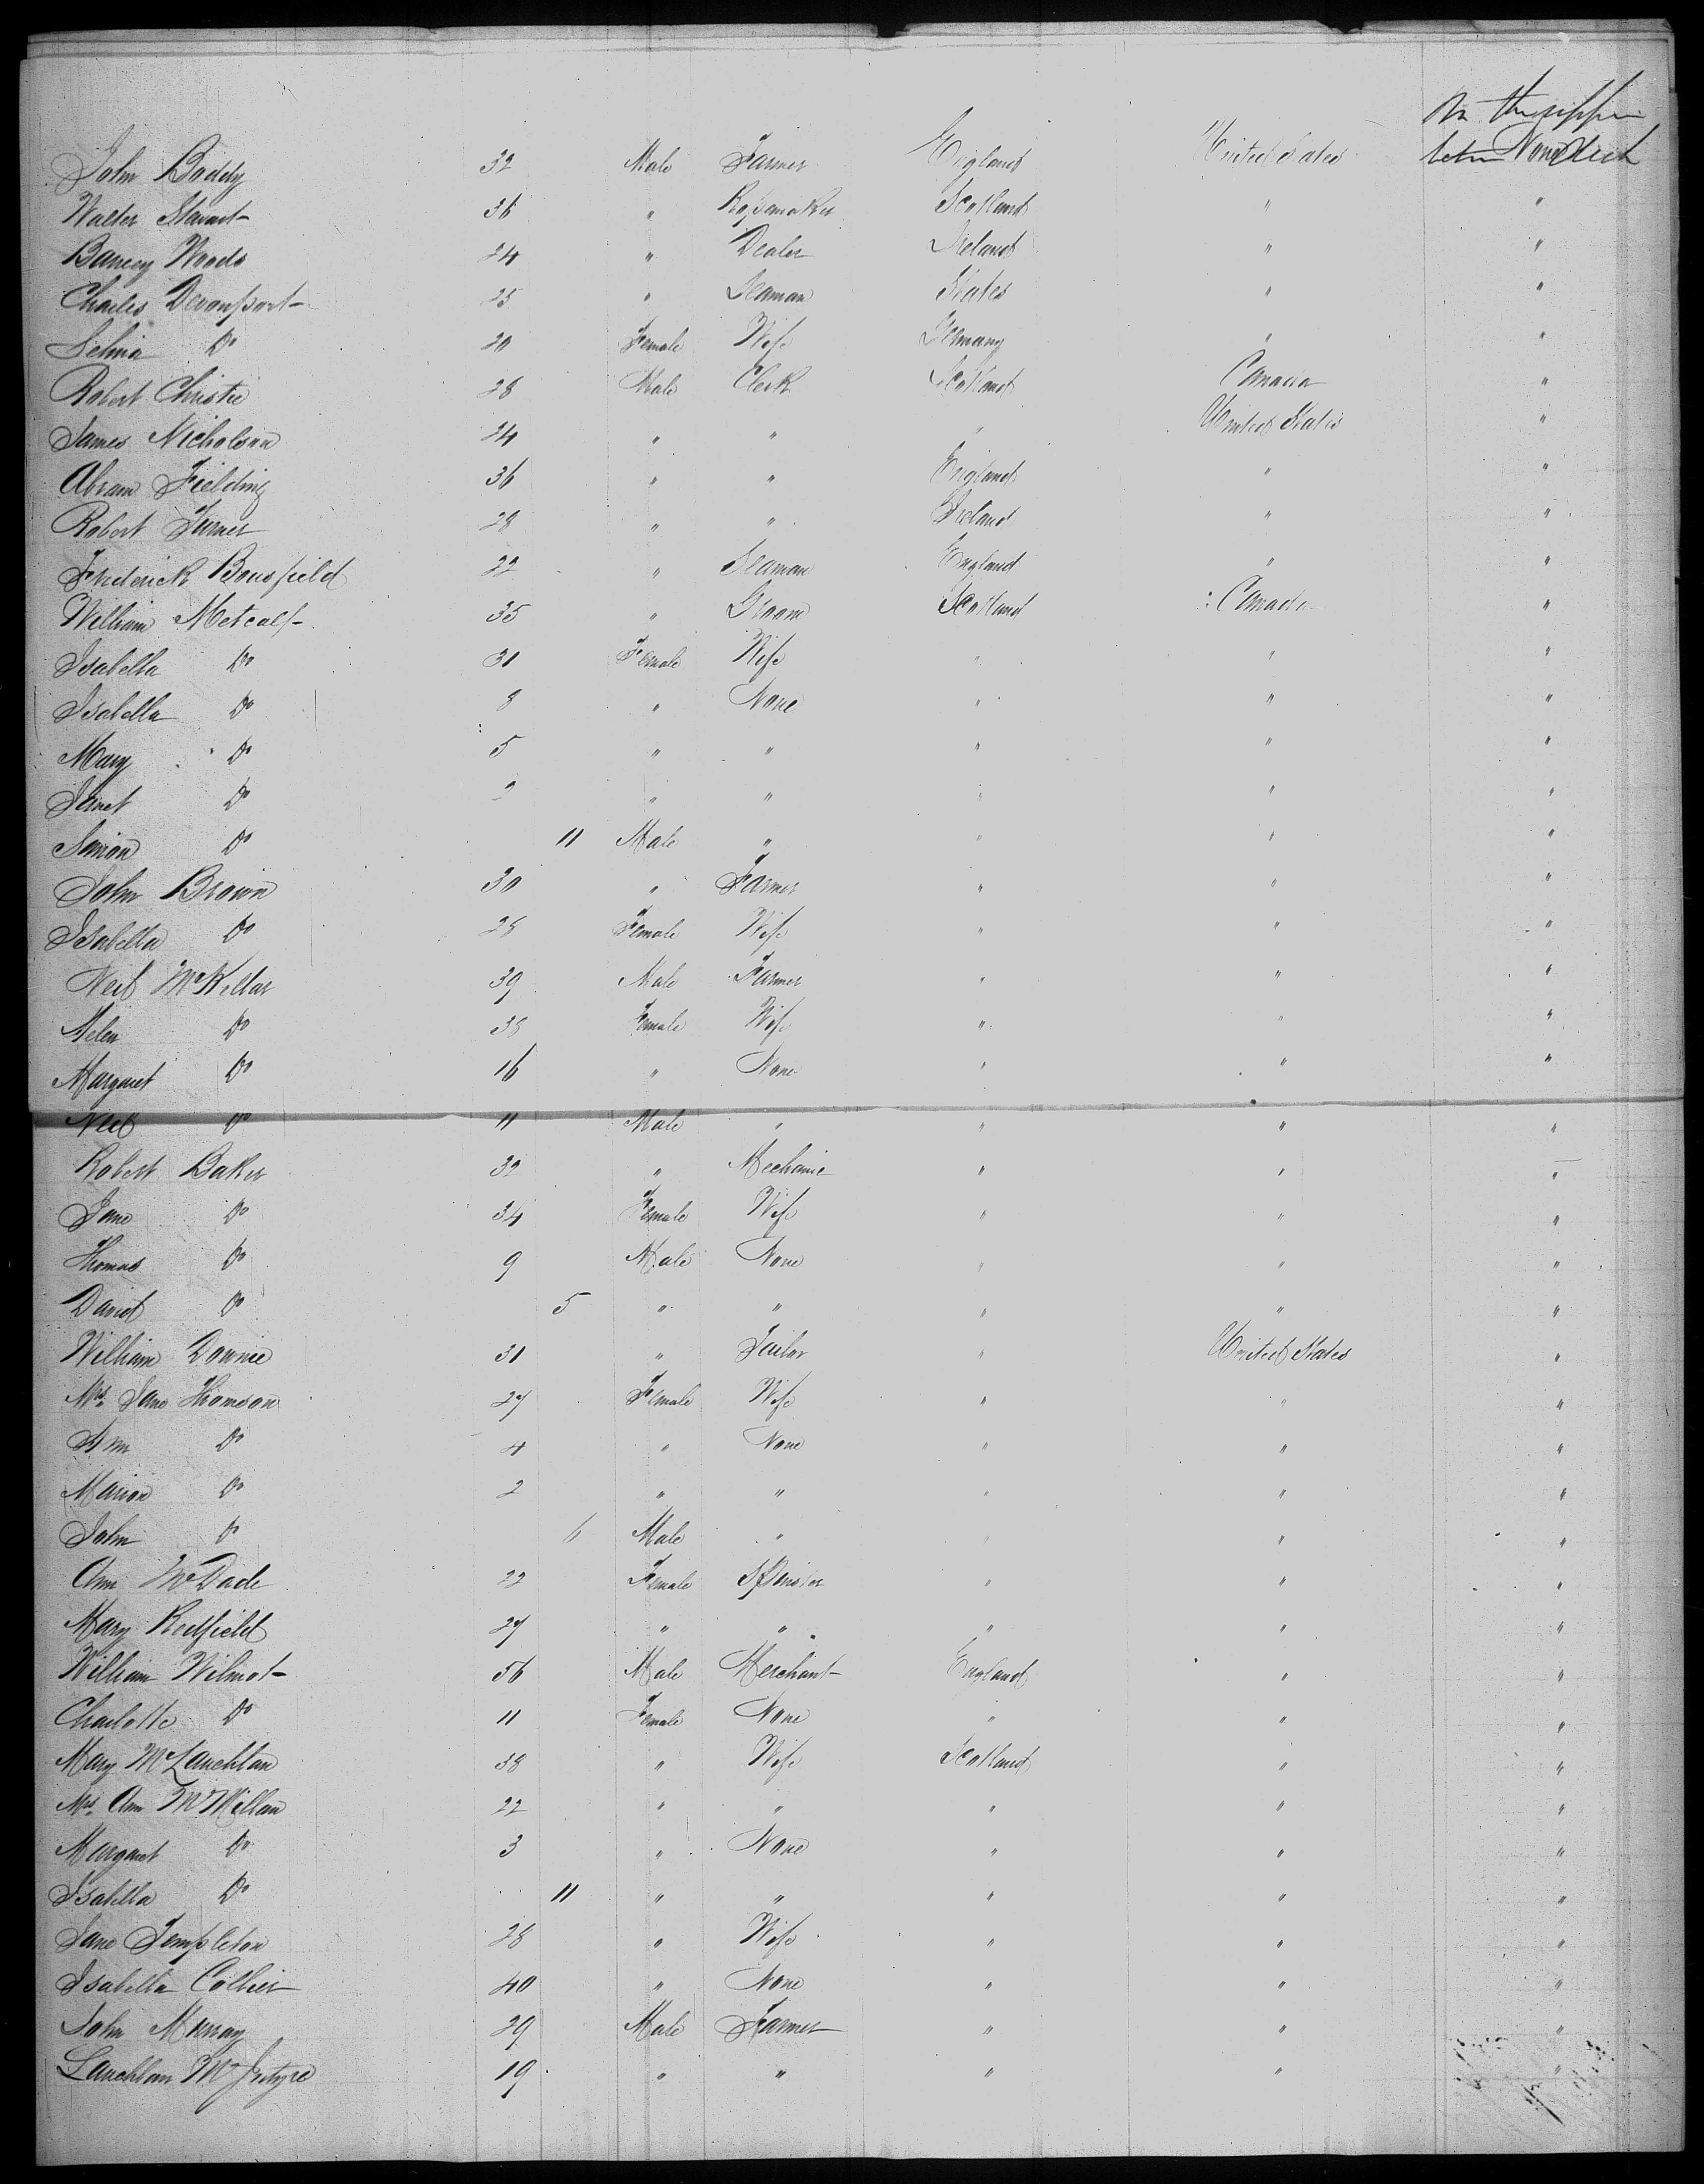 On the upper
between None deck
John Boddy 32 Male Farmer England United States
Walter Stewart 36 " Ropemaker Scotland " "
Barney Woods 24 " Dealer Ireland " "
Charles Devonport 25 " Seaman States " "
Selina Do 20 Female Wife Germany " "
Robert Christie 28 Male Clerk Scotland Canada "
James Nicholson 24 " " " United States "
Abram Fielding 36 " " England " "
Robert Turner 28 " " Ireland " "
Frederick Bousfield 22 " Seaman England " "
William Metcalf 35 " Groom Scotland Canada "
Isabella Do 31 Female Wife " " "
Isabella Do 8 " None " " "
Mary Do 5 " " " " "
Janet Do 2 " " " " "
Simon Do 11 Male " " " "
John Brown 30 " Farmer " " "
Isabella Do 28 Female Wife " " "
Neil McKellar 39 Male Farmer " " "
Helen Do 38 Female Wife " " "
Margaret Do 16 " None " " "
Neil Do 11 Male " " " "
Robert Baker 32 " Mechanic " " "
Jane Do 34 Female Wife " " "
Thomas Do 9 Male None " " "
Daniel Do 5 " " " " "
William Downie 31 " Tailor " United States "
Mrs Jane Thomson 27 Female Wife " " "
Ann Do 4 " None " " "
Marion Do 2 " " " " "
John Do 6 Male " " " "
Ann McDade 22 Female Spinster " " "
Mary Redfield 27 " " " " "
William Wilmot 56 Male Merchant England " "
Charlotte Do 11 Female None " " "
Mary McLauchlan 38 " Wife Scotland " "
Mrs Ann McMillan 22 " " " " "
Margaret Do 3 " None " " "
Isabella Do 11 " " " " "
Jane Templeton 28 " Wife " " "
Isabella Collier 40 " None " " "
John Murray 29 Male Farmer " " "
Lauchlan McIntyre 19 " " " " "